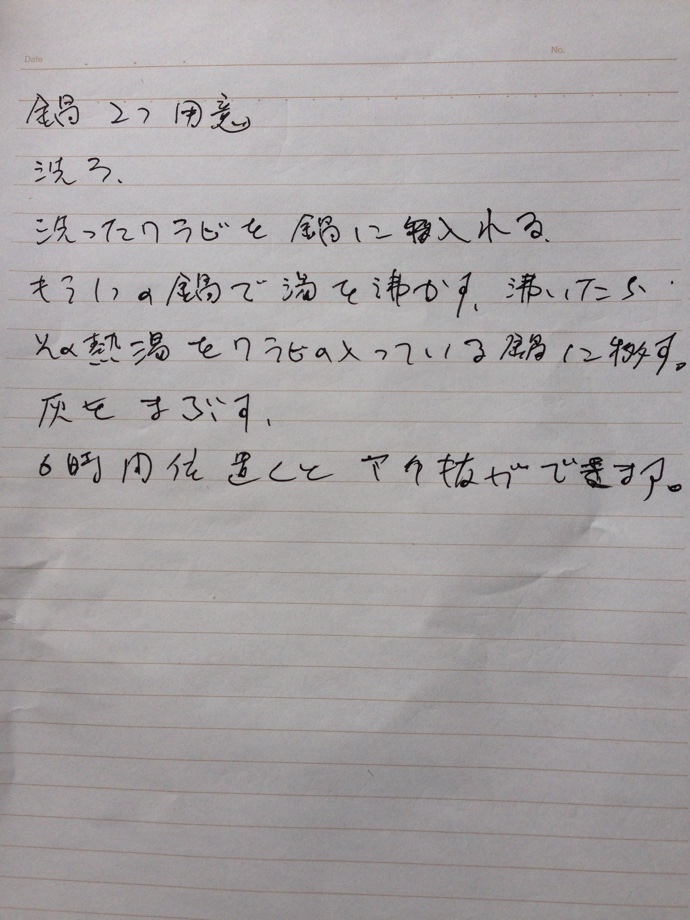 Date
No.
鍋 2つ 用意
洗う、
洗ったワラビを 鍋に 入れる、
もう1つの鍋で湯を沸かす、沸いたら、
その熱湯をワラビの入っている鍋に移す。
灰をまぶす、
6時間位置くと アク抜ができます。